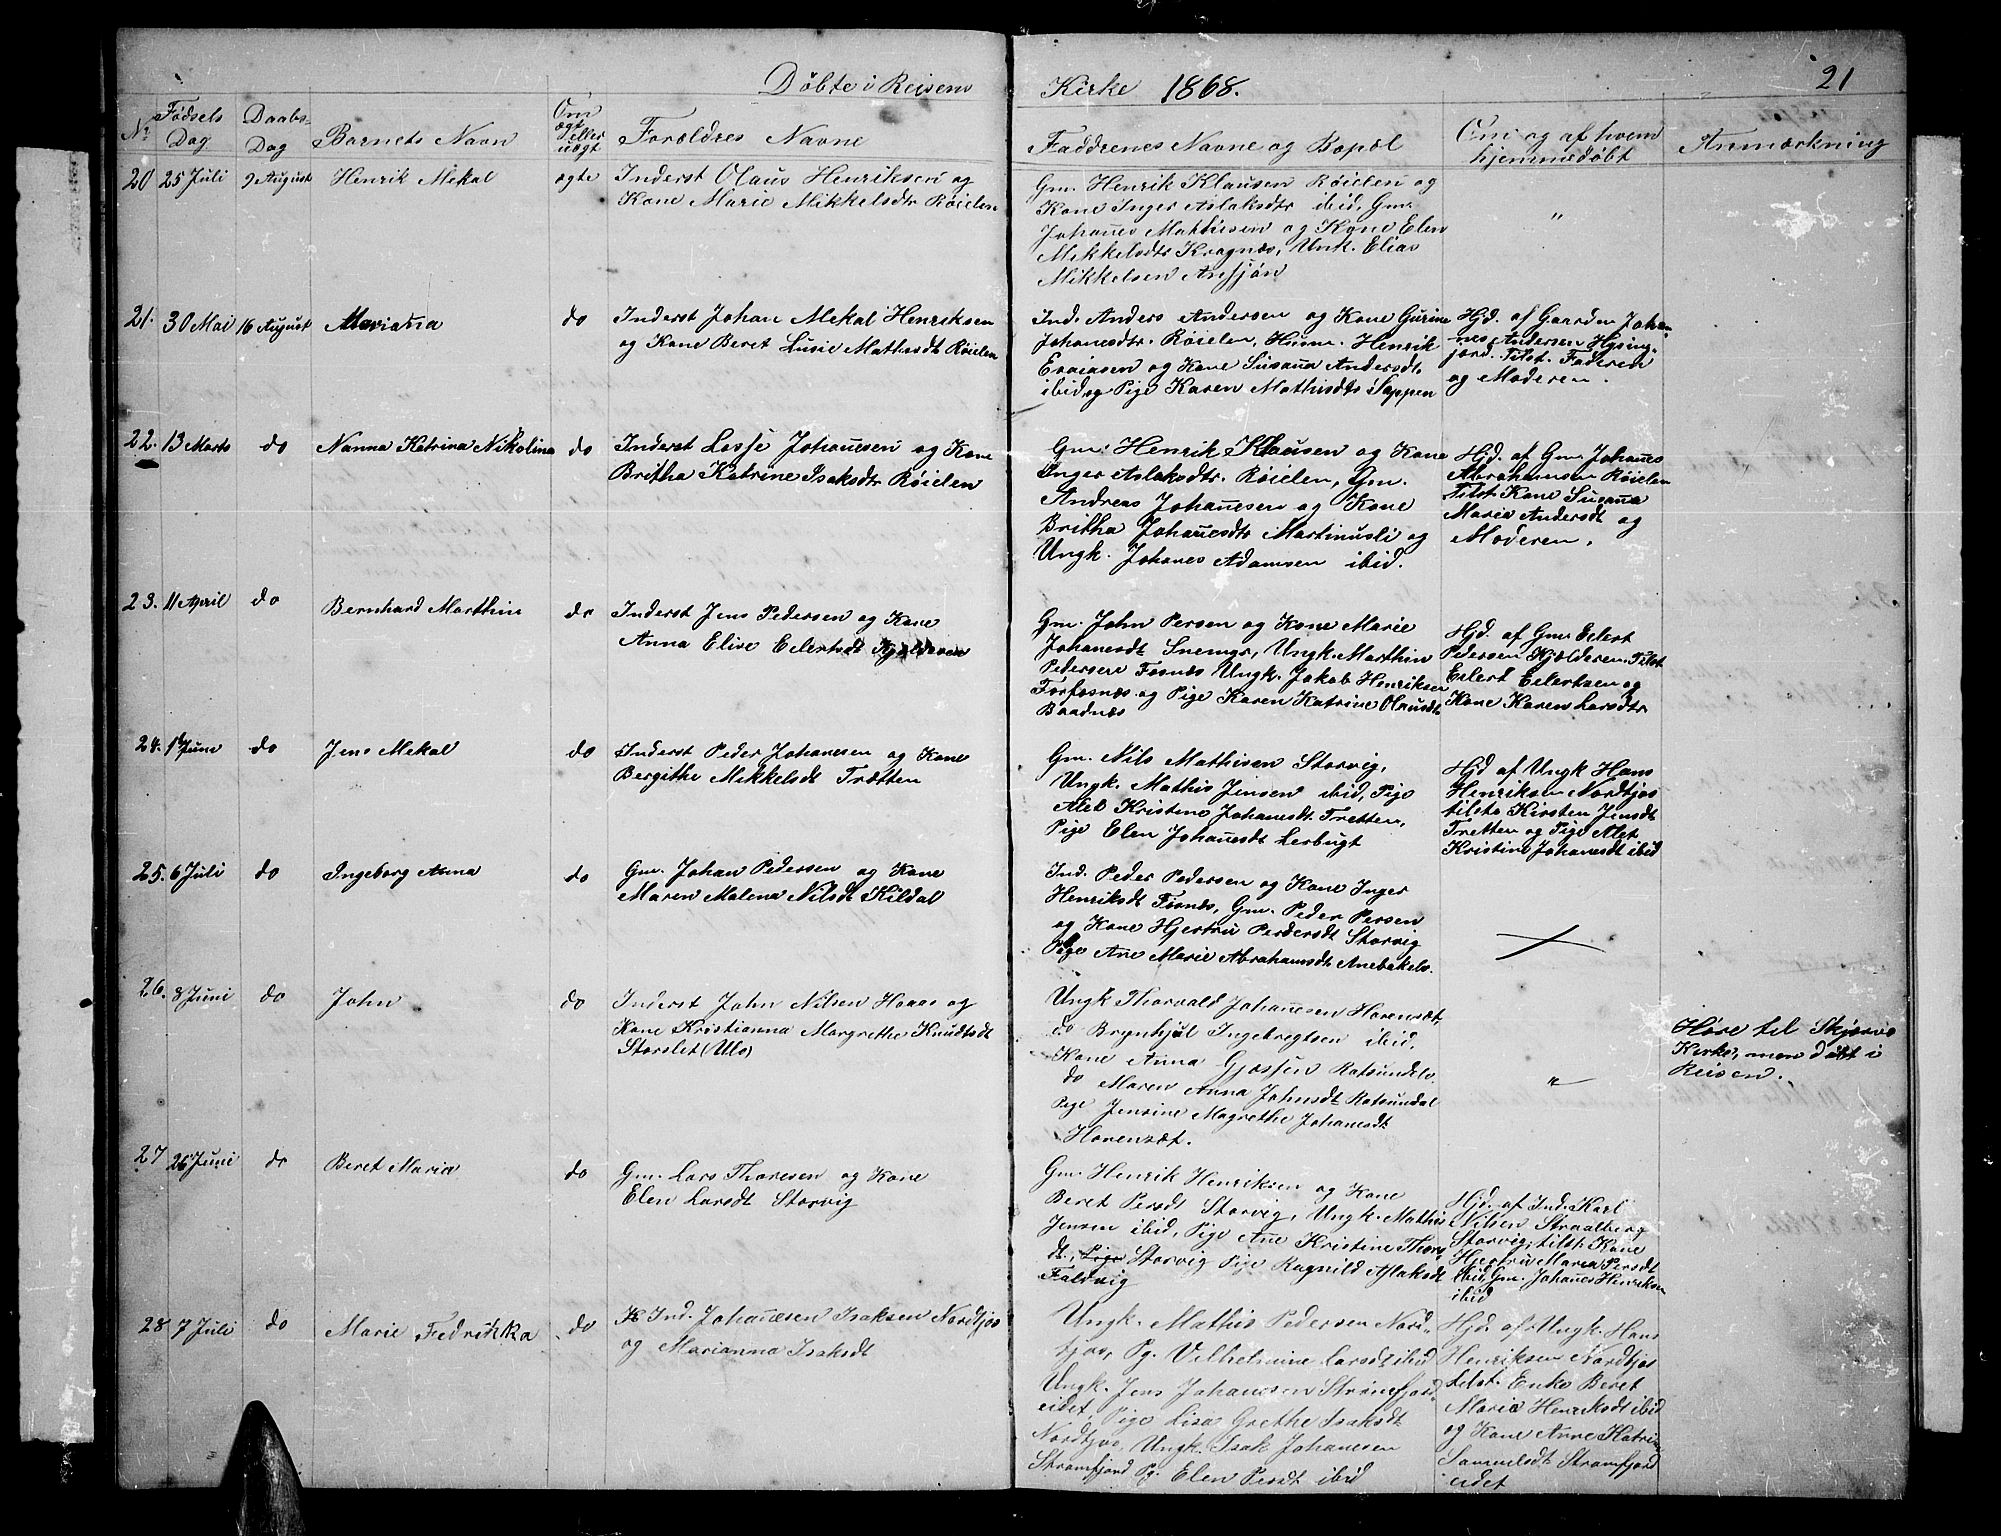 Døbte i Reisens Kirke 1868.
21
No
Fødsels Dag
Daabs-Dag
Barnets Navn
Om ægt eller uægt
Forældres Navne
Faddrenes Navne og Bopæl
Om og af hvem hjemmedøbt
Anmærkning
20 25 Juli 9 August Henrik Mekal ægte
Inderst Olaus Henriksen og
Kone Marie Mikkelsdtr Røielen
Gm. Henrik Klausen Røielen og
Kone Inger Aslaksdtr ibid, Gm.
Johañes Mathisen og Kone Elen
Mikkelsdtr Kragnæs, Unk. Elias
Mikkelsen Ansjøn
"
21. 30 Mai 16 August Mariaña do
Inderst Johan Mekal Henriksen
og Kone Beret Lusie Mathisdt Røielen
Ind. Anders Andersen og Kone Gurine
Johanesdtr. Røielen, Husm. Henrik
Esaiasen og Kone Susaña Andersdt.
ibid, og Pige Karen Mathisdtr Sappen
Hjd. af Gaardm Johan-
nes Andersen Hysing-
jord. Tilst. Faderen
og Moderen.
22. 13 Marts do Nanna Katrina Nikolina do
Inderst Lasse Johañesen og Kone
Britha Katrine Isaksdtr Røielen
Gm. Henrik Klausen og Kone
Inger Aslaksdtr. Røielen, Gm.
Andreas Johañesen og Kone
Britha Johañesdtr Martinusli og
Ungk. Johanes Adamsen ibid.
Hjd. af Gm Johañes
Abrahamsen Røielen
Tilst Kone Susaña
Maria Andersdt og
Moderen.
23. 11 April do Bernhard Marthin do
Inderst Jens Pedersen og Kone
Anna Elive Eilertsdt Kjælderen
Gm. John Persen og Kone Marie
Johanesdt Snemyr, Ungk. Marthin
Pedersen Fosnæs Ungk. Jakob Henriksen
Forfosnæs og Pige Karen Katrine Olausdt.
Baadnæs
Hjd. af Gm Eilert
Pedersen Kjælderen. Tilst
Eilert Eilertsen og
Kone Karen Larsdtr
24. Juni do Jens Mekal do
Inderst Peder Johanesen og Kone
Bergithe Mikkelsdt Trætten
Gm. Nils Mathisen Storvig,
Ungk. Mathis Jensen ibid, Pige
Alet Kristine Johanesdt Tretten,
Pige Elen Johañesdt Lerbugt
Hjd af Ungk Hans
Henriksen Nordkjos
tilste Kirsten Jensdt
Tretten og Pige Alet
Kristine Johanesdt ibid
25. 6 Juli do Ingeborg Anna do
Gm. Johan Pedersen og Kone
Maren Malena Nilsdt Kildal
Ind. Peder Pedersen og Kone Inger
Henriksdt Fosnæs, Gm. Peder Persen
og Kone Hjertru Pedersdt Storvig
Pige Ane Marie Abrahamsdt Anebakels.
26. 8 Juni do John do
Inderst John Nilsen Haaas og
Kone Kristianna Margrethe Knudtsdt
Storslet (Ulø)
Ungk Thorvald Johañesen Havensæt,
do Brynhjul Ingebregtsen ibid,
Kone Anna Gjæssen Rotsundelv.
do Maren Anna Johnsdt Rotsundal
Pige Jensine Magrethe Johanesdt
Havensæt.
"
Høre til Skjærvø
Kirke, men døbt i
Reisen.
27 26 Juni do Beret Maria do
Gm. Lars Thoresen og Kone
Elen Larsdt Storvig
Gm. Henrik Henriksen og Kone
Beret Persdt Storvig, Ungk. Mathis
Jensen ibid, Pige Ane Kristine Thors
dt, Pige Storvig Pige Ragnild Aslaksdt
Faldvig
Hjd. af Ind. Karl
Nilsen Straalberg
Storvig, tilst. Kone
Hjertru Maria Persdt
ibid, Gm. Johañes Henriksen
ibid
28 7 Juli do Marie Fedrikka do
Ind. Johañesen Isaksen Nordkjos
og Marianna Isaksdt
Ungk. Mathis Pedersen Nord-
kjos, Pg. Vilhelmine Larsdt ibid
Ungk. Jens Johanesen Strømfjord
eidet, Pige Lisa Grethe Isaksdt
Nordkjos, Ungk. Isak Johanesen
Strømfjord Pg. Elen Persdt ibid
Hjd. af Ungk. Hans
Henriksen Nordkjos
tilst. Enke Beret
Maria Henriksdt ibid
og Kone Anne Katrin
Samuelsdt Strømfjord
eidet